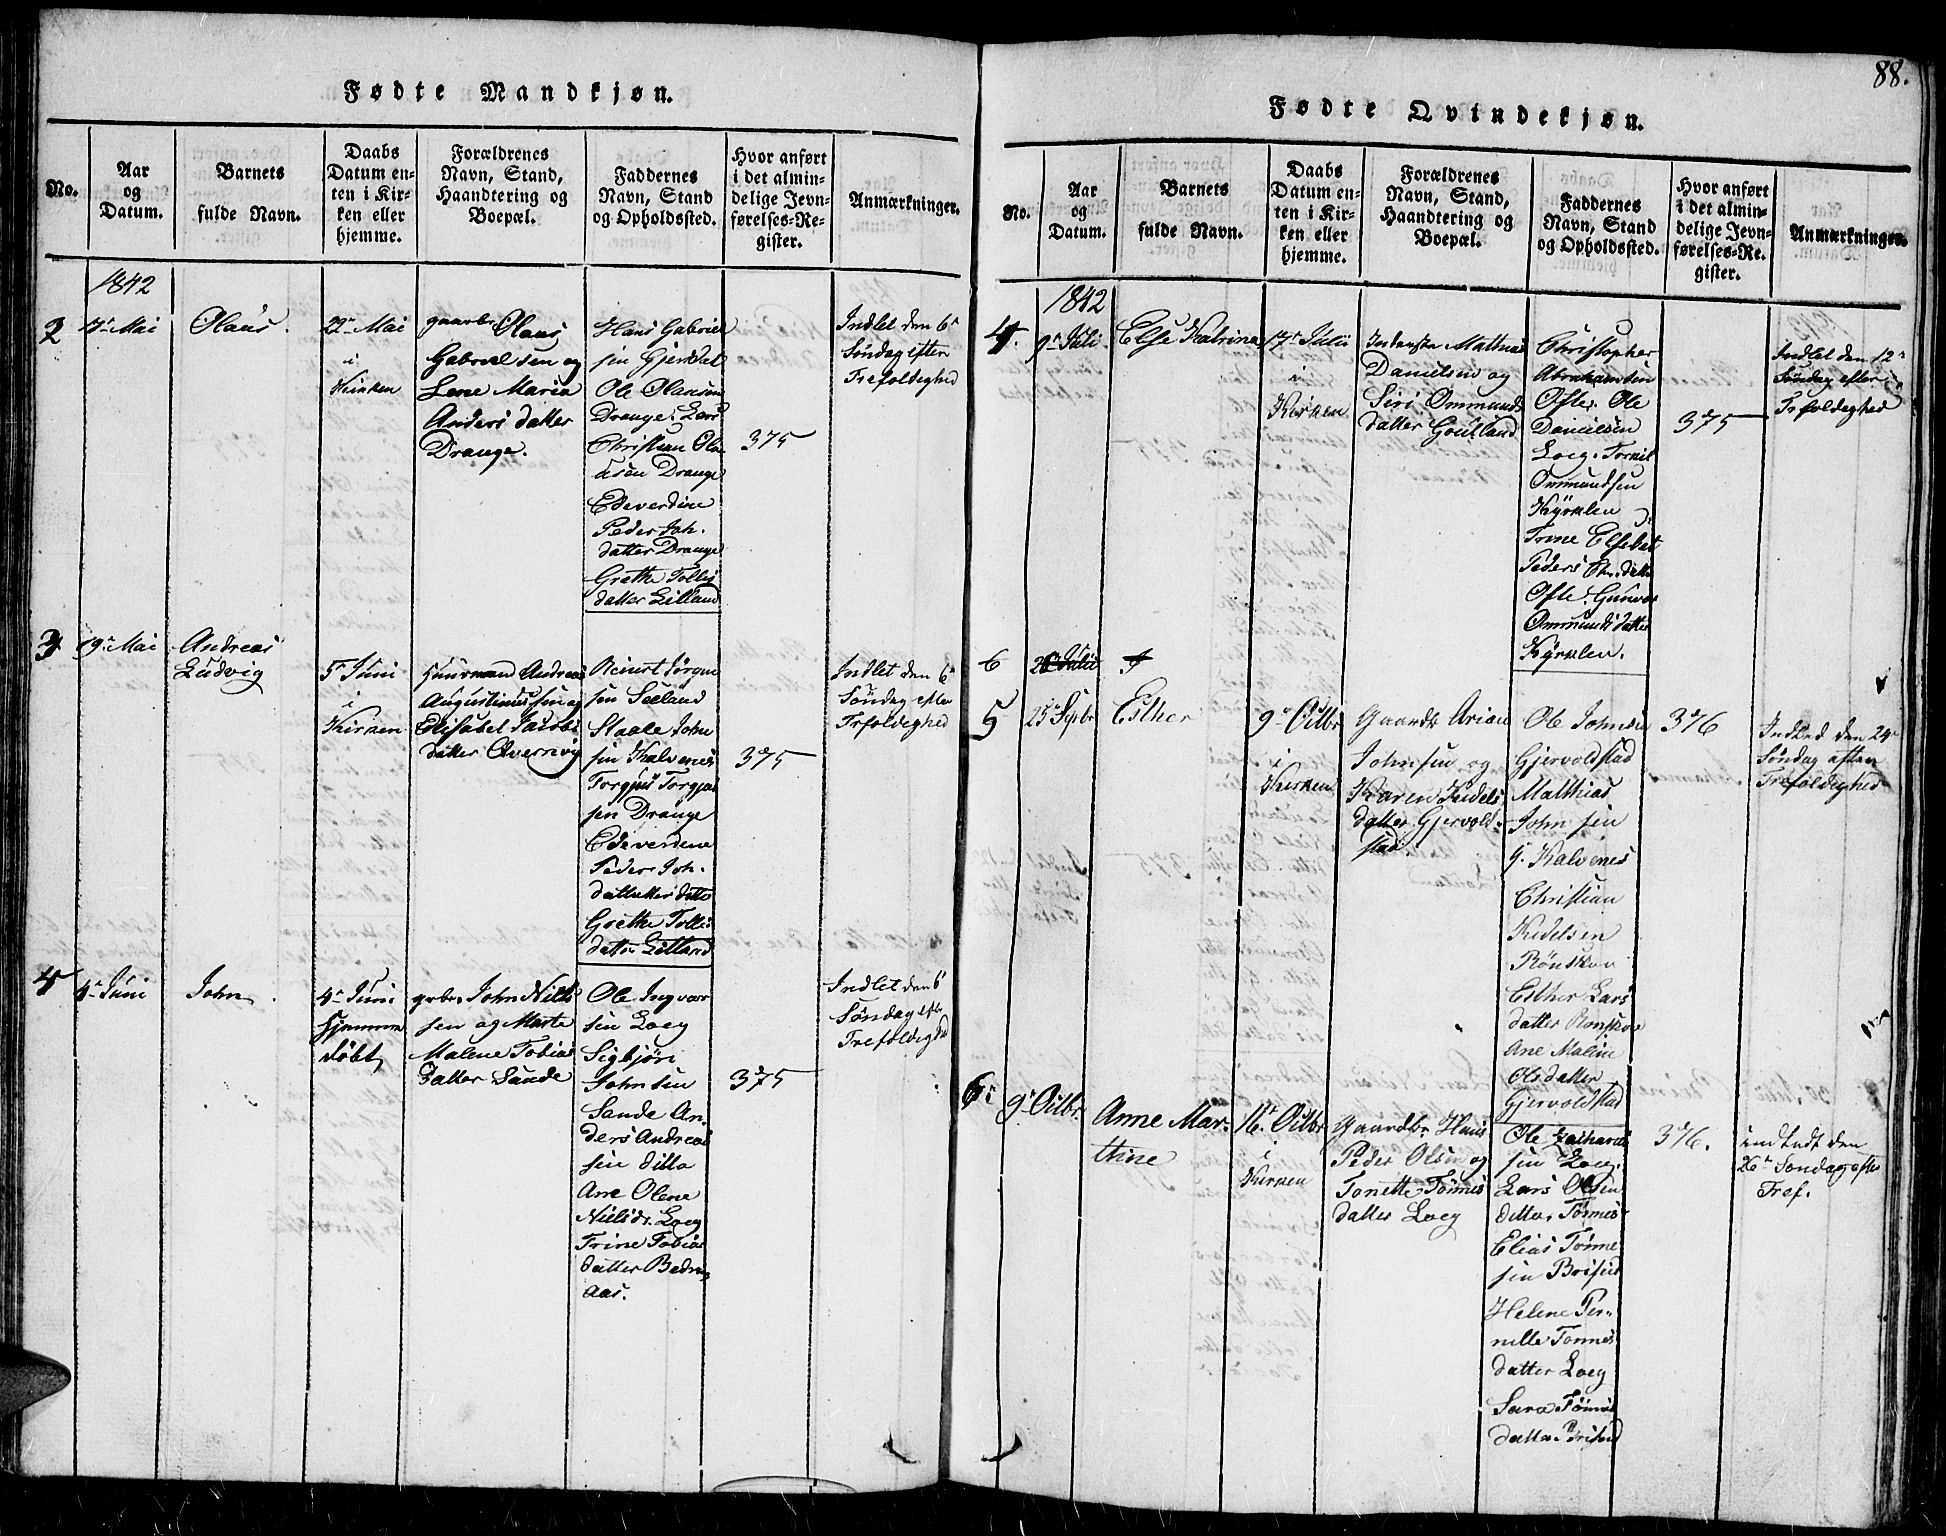 Fødte Mandkjøn.
No.
Aar
og
Datum.
Barnets
fulde Navn.
Daabs
Datum en-
ten i Kir-
ken eller
hjemme.
Forældrenes
Navn, Stand,
Haandtering og
Boepæl.
Faddernes
Navn, Stand
og Opholdssted.
Hvor anført
i det almin-
delige Jevn-
førelses-Re-
gister.
Anmærkninger.
1842
2
7de Mai
Olaus.
22de Mai
i
Kirken
gaardbr Olaus
Gabrielsen og
Lene Maria
Anders datter
Drange.
Hans Gabriel
sen Gjerdal
Ole Olausen
Drange. Lars
Christian Ola
usen Drange
Edeverdine
Peder Joh.
datter Drange
Grethe Tolles
datter Lilland
375
Indlet den 6te
Søndag efter
Trefoldighed
3
19de Mai
Andreas
Ludvig
5te Juni
i
Kirken
Huusmand Andreas
Augustinussen og
Elisabet Jacobs
datter Qvernvig
Reinert Jørgen
sen Seeland
Staale John
sen Kalvenes
Torgjus Torgjus
sen Drange
Edeverdine
Peder Joh.
datter ditto
Grethe Tolles
datter Lilland
375
Indlet den 6te
Søndag efter
Trefoldighed
4
4de Juni
John
4de Juni
hjemme
døbt
grbr John Niels
sen og Marte
Malene Tobias
datter Sande
Ole Ingvar
sen Loeg
Sigbjørn
John sen
Sande An
ders Andreas
sen ditto
Ane Olene
Nielsdr. Loeg
Trine Tobias
datter Bedn
aas.
375
Indlet den 6te
Søndag efter
Trefoldighed
88.
Fødte Qvindekjøn.
No.
Aar
og
Datum.
Barnets
fulde Navn.
Daabs
Datum en-
ten i Kir-
ken eller
hjemme.
Forældrenes
Navn, Stand,
Haandtering og
Boepæl.
Faddernes
Navn, Stand
og Opholdssted.
Hvor anført
i det almin-
delige Jevn-
førelses-Re-
gister.
Anmærkninger.
1842
4.
9de Juli
Else Katrine
17de Julii
i
Kirken
Matthias
Danielsen og
Siri Ommunds
datter Goutland
Christopher
Abrahamsen
Ofte. Ole
Danielsen
Loeg. Torkil
Ommundsen
Kÿrklen
Trine Elsebet
Peders datter
Ofte. Gunvor
Ommunds datter
Kÿrklen.
375
Indlet den 12te
Søndag efter
Trefoldeghed
6
5
25de Sepbr
Esther
9de Octbr
i
Kirken
Gaardb. Arian
Johnsen og
Karen Kidels
datter Gjervold-
stad.
Ole Johnsen
Gjervoldstad
Matthias
John sen
Kalvenes
Christian
Kidelsen
Rønskou
Esther Lars
datter Rønskou
Ane Maline
Olsdatter
Gjervoldstad
376
Indled den 24de
Søndag efter
Trefoldighed
6te
9de Octbr.
Anne Mar-
thine
16de Octbr
i
Kirken
Gaardbr. Hans
Peder Olsen og
Tonette Tønnes
datter Loeg
Ole Zacharias
sen Loeg.
Lars Olsen
ditto. Tønnes
Elias Tønne
sen Brisend
Helene Per-
nille Tønnes
datter Loeg
Sara Tønnes
datter Brisend
376.
indledt den
26de Søndag efter
Tref.